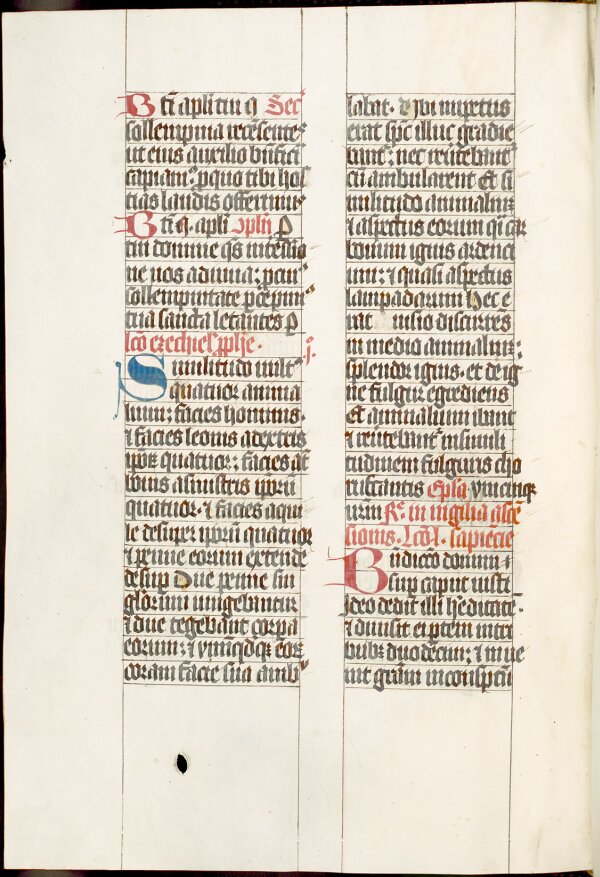 Bti apli tui q Sec
sollempnia recensente
ut eius auxilio bnfici
capiam. p quo tibi hos
tias laudis offerimus
Bti q. apli 9pln P
tui domine qs intcessio
ne nos adiuua: p cui
sollempnitate pcepim
tua sancta letantes p
lco ezechiel pphe. .j.
Similitudo uult
quatuor anima
lium: facies hominis.
et facies leonis a dextris
ipor quatuor: facies at
bouis a sinistris ipru
quatuor. et facies aqui
le desuper ipru quatuor
et penne eorum extente
desup Due penne sin
glorum iungebantur
et due tegebant corpa
eorum: et vnuqdqe eor
coram facie sua amb
labat. vbi impetus
erat spc illuc gradie
bant: nec reutebant
cu ambularent Et si
militudo animaliu
et aspectus eorum qi car
bonum ignis ardenci
um: et quasi aspectus
lampadarum Hec e
rat uisio discurres
in medio animaliu:
splendor ignis. et de ig
ne fulgur egrediens
Et animalium ibant
et reutebant in simili
tudinem fulguris cho
ruscantis Epla vincenq
urm R. in uigilia asce
sionis. lco l. sapiecie
Bndicco domini
sup caput iusti
Ideo dedit illi heditate.
et diuisit ei ptem in tri
bubz duodecim: et inue
nit gram in conspcu